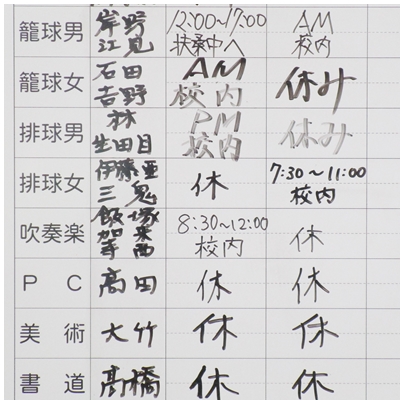 籠球男 岸野 12:00~17:00 AM
江見 扶桑中へ 校内
籠球女 石田 AM 休み
吉野 校内
排球男 林 PM 休み
生田目 校内
排球女 伊藤亜 休 7:30~11:00
三鬼 校内
吹奏楽 飯塚 8:30~12:00 休
加来 校内
寺西
PC 高田 休 休
美術 大竹 休 休
書道 高橋 休 休